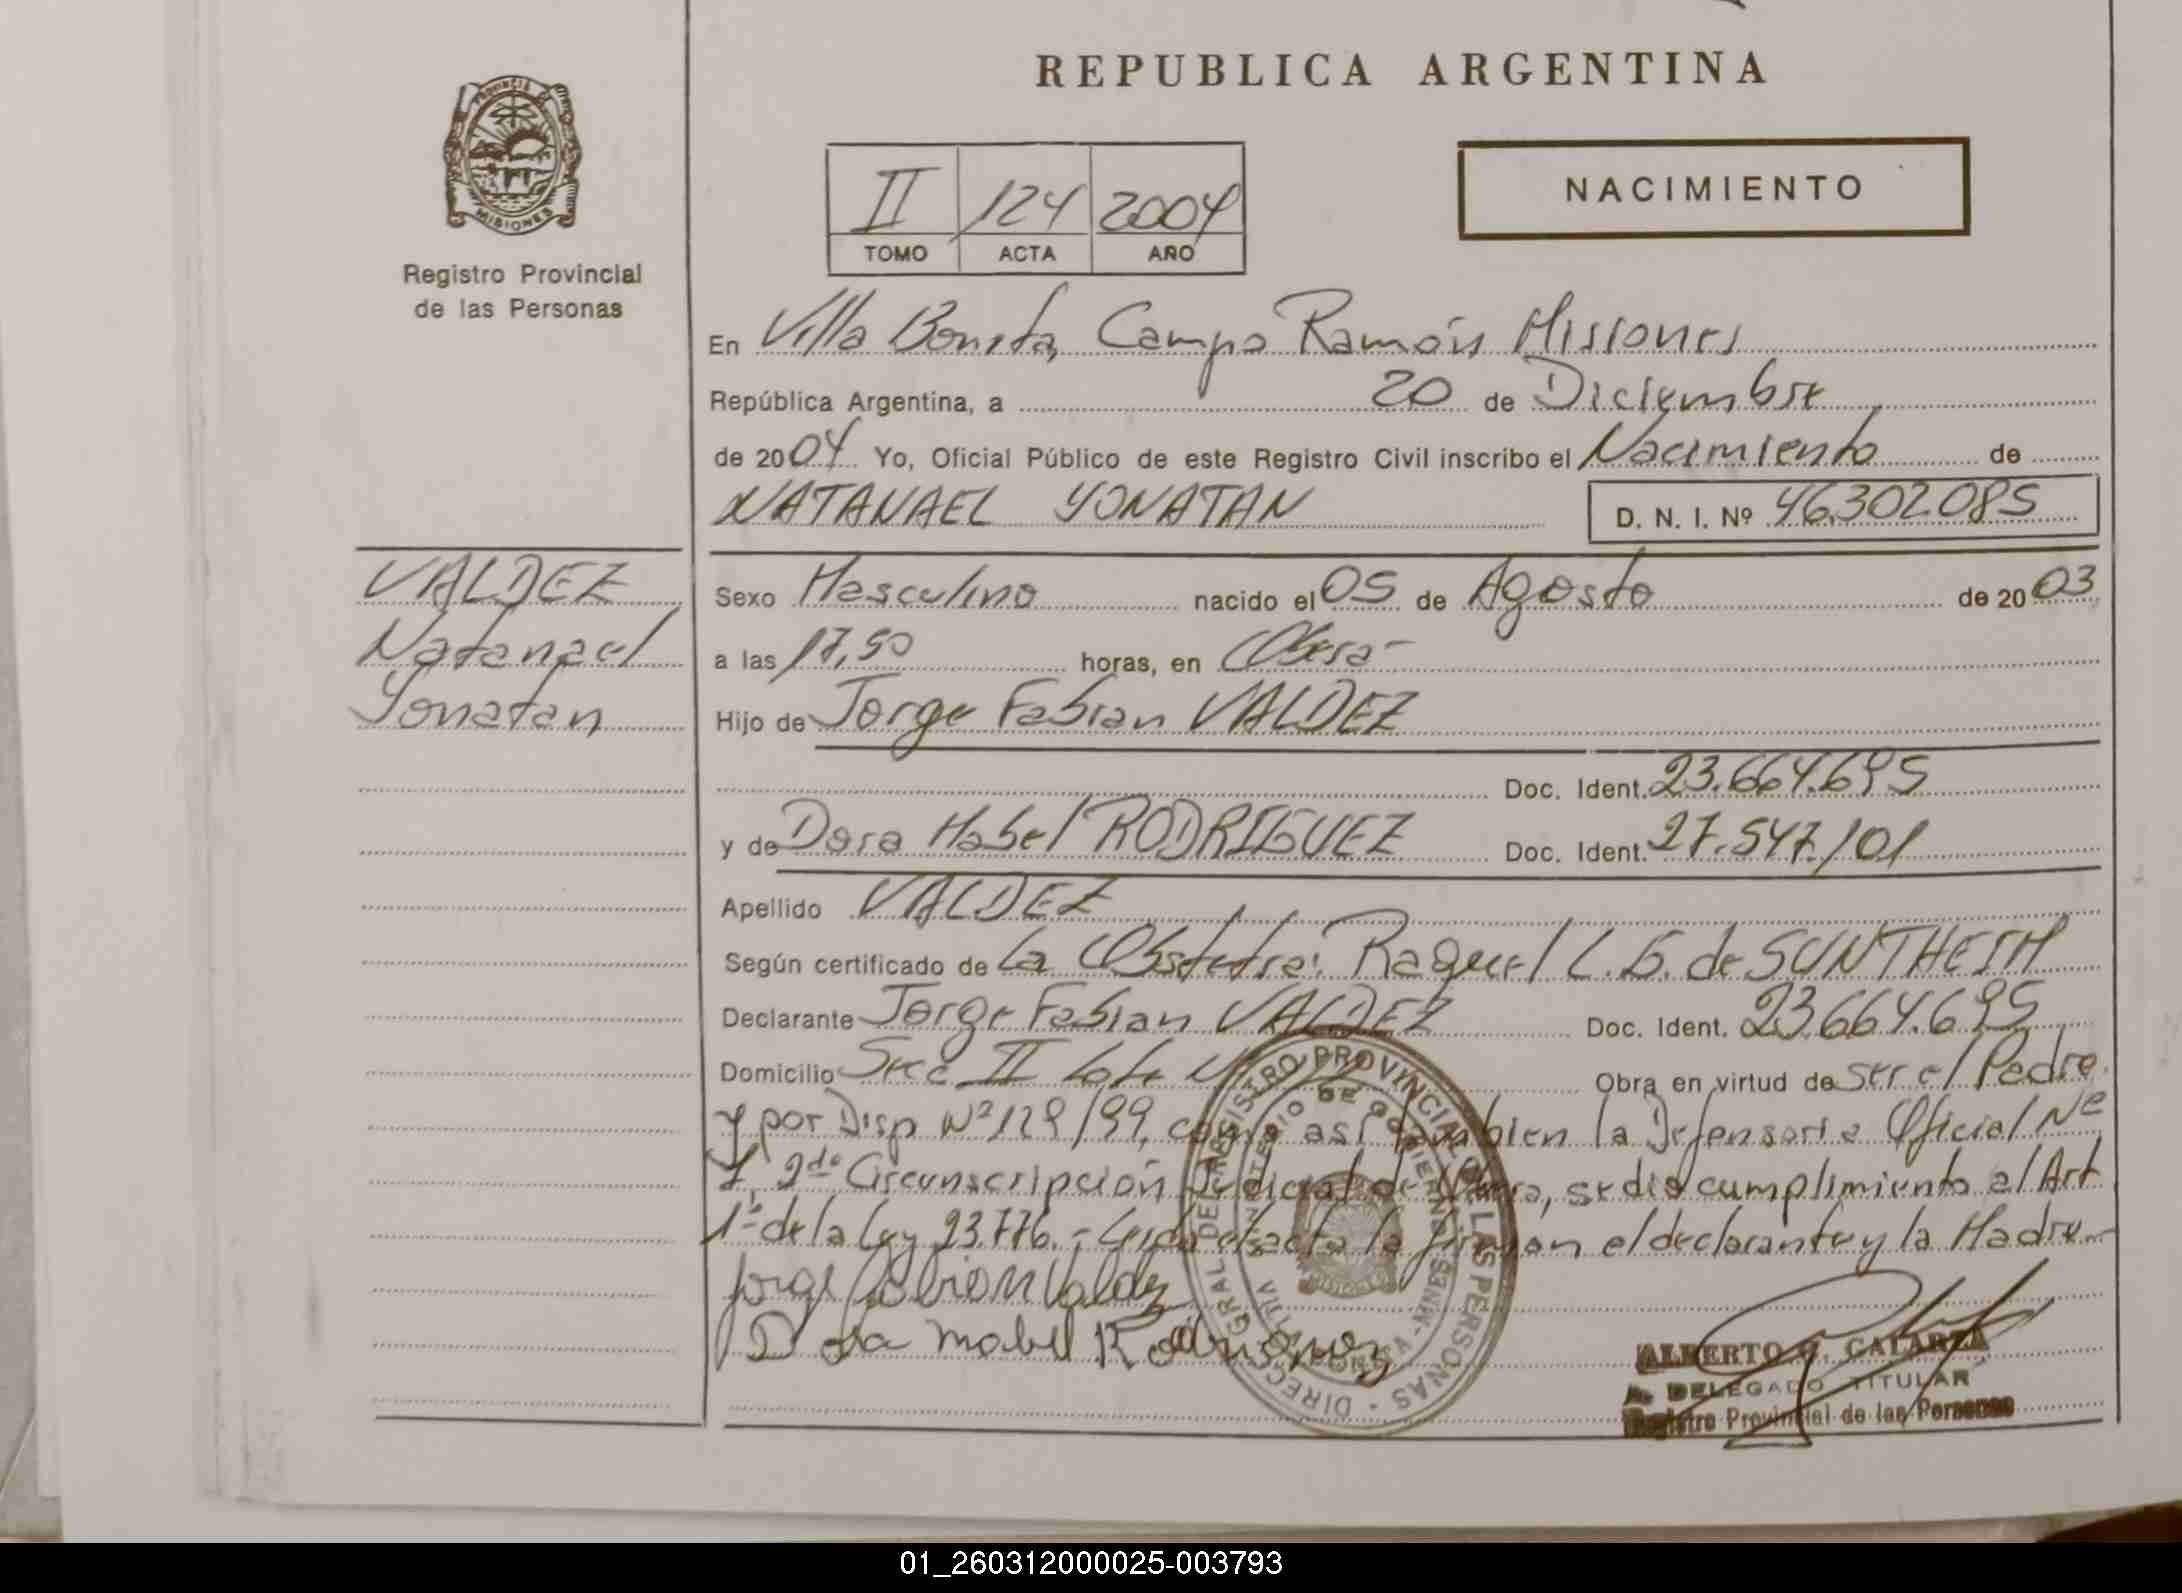 REPUBLICA ARGENTINA
PROVINCIA DE
MISIONES
Registro Provincial
de las Personas
II 124 2004
TOMO ACTA AÑO
NACIMIENTO
En Villa Bonita, Campo Ramón Misiones
República Argentina, a 20 de Diciembre
de 2004 Yo, Oficial Público de este Registro Civil inscribo el Nacimiento de
NATANAEL YONATAN D. N. I. Nº 46.302.085
VALDEZ
Natanael
Yonatan
Sexo Masculino nacido el 05 de Agosto de 2003
a las 17,50 horas, en Oberá
Hijo de Jorge Fabian VALDEZ
Doc. Ident. 23.664.695
y de Dora Mabel RODRIGUEZ Doc. Ident. 27.547.101
Apellido VALDEZ
Según certificado de La Obstetra: Raquel L. G. de SUNTHEIM
Declarante Jorge Fabian VALDEZ Doc. Ident. 23.664.695
Domicilio Secc II Lote Obra en virtud de ser el Padre
y por Disp Nº 129/99, como asi tambien la Defensoria Oficial Nº
1, 2da Circunscripción Judicial de Obera, se dio cumplimiento al Art
1º de la Ley 23.776.- Leida el acta la firman el declarante y la Madre.-
Jorge Fabian Valdez
Dora Mabel Rodriguez
DIRECC. GRAL. DEL REGISTRO PROVINCIAL DE LAS PERSONAS
MINISTERIO DE GOBIERNO
ALBERTO G. GALARZA
DELEGADO TITULAR
Registro Provincial de las Personas
01_260312000025-003793